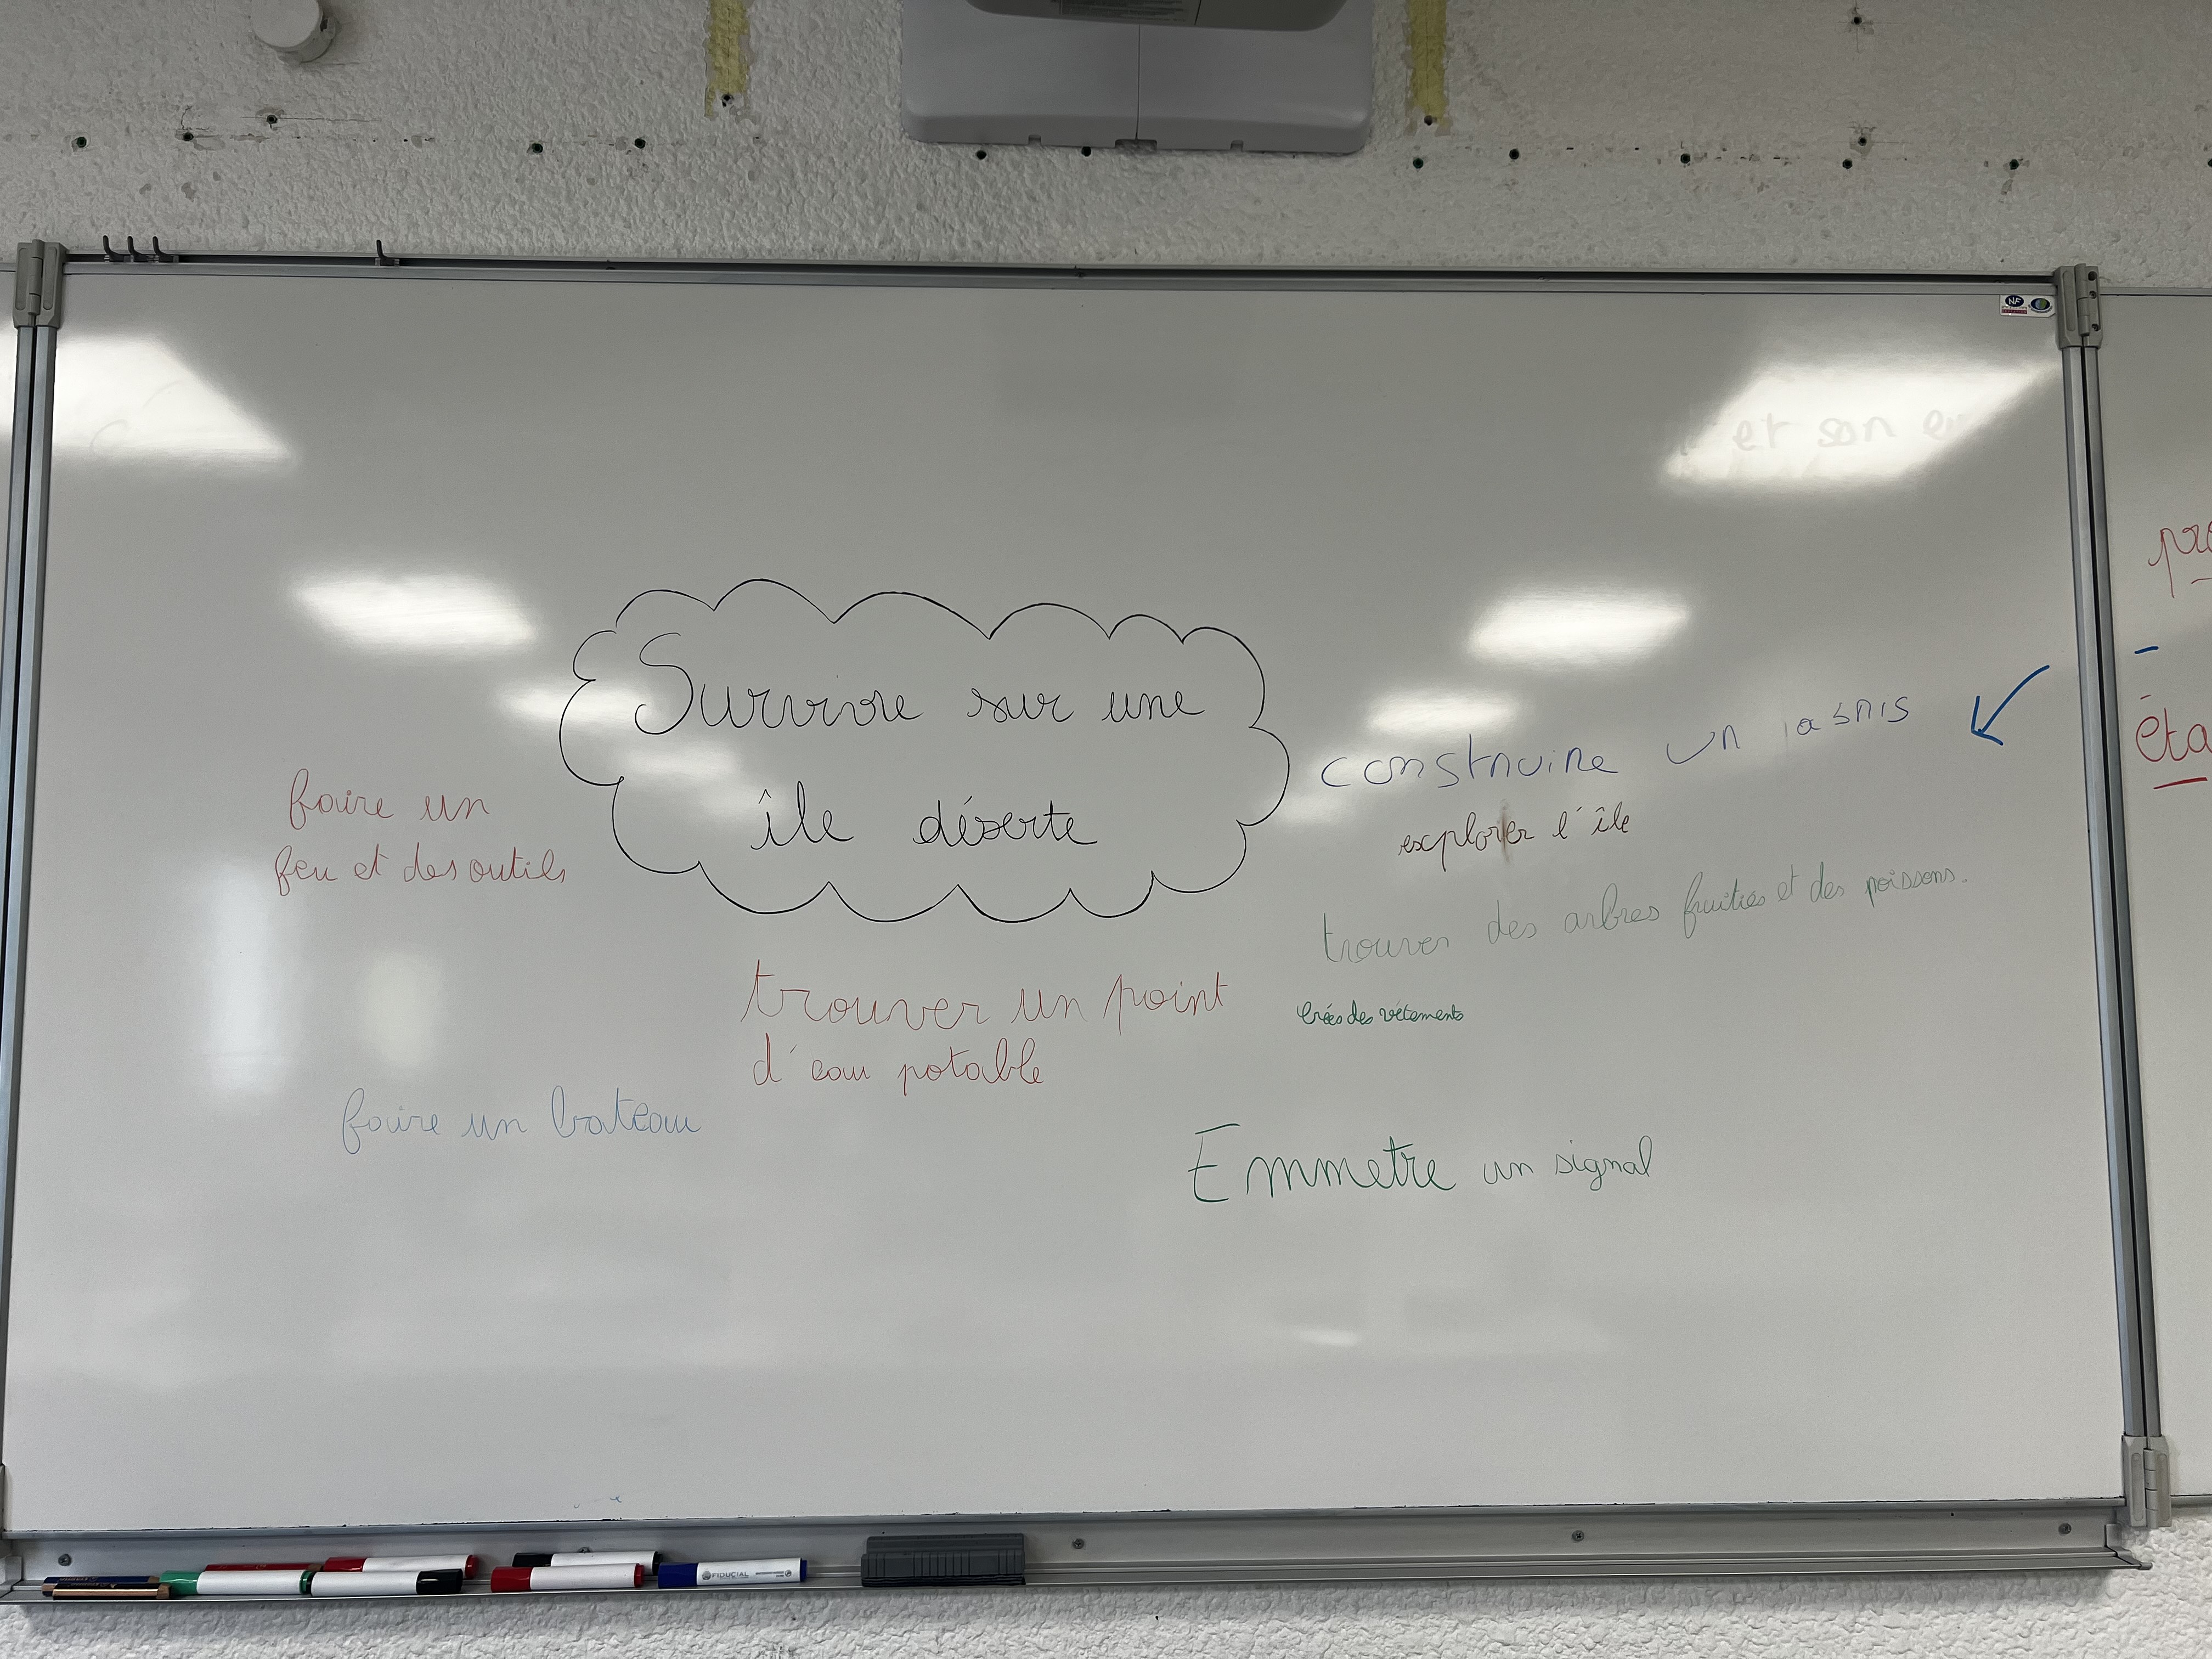 et son
Survivre sur une
île déserte
construire un
explorer l'île
faire un
feu et des outils
trouver des arbres fruitiés et des poissons.
trouver un point
d'eau potable
Créés des vétements
faire un bateau
Emmetre un signal
pro
éta
NF
FIDUCIAL